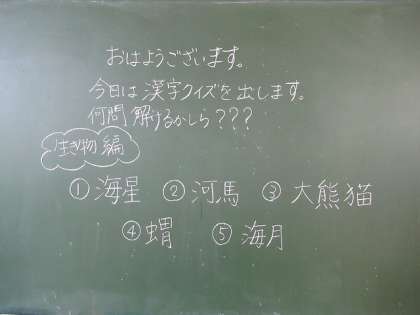 おはようございます。
今日は漢字クイズを出します。
何問解けるかしら???
生き物編
①海星 ②河馬 ③大熊猫
④蝟 ⑤海月